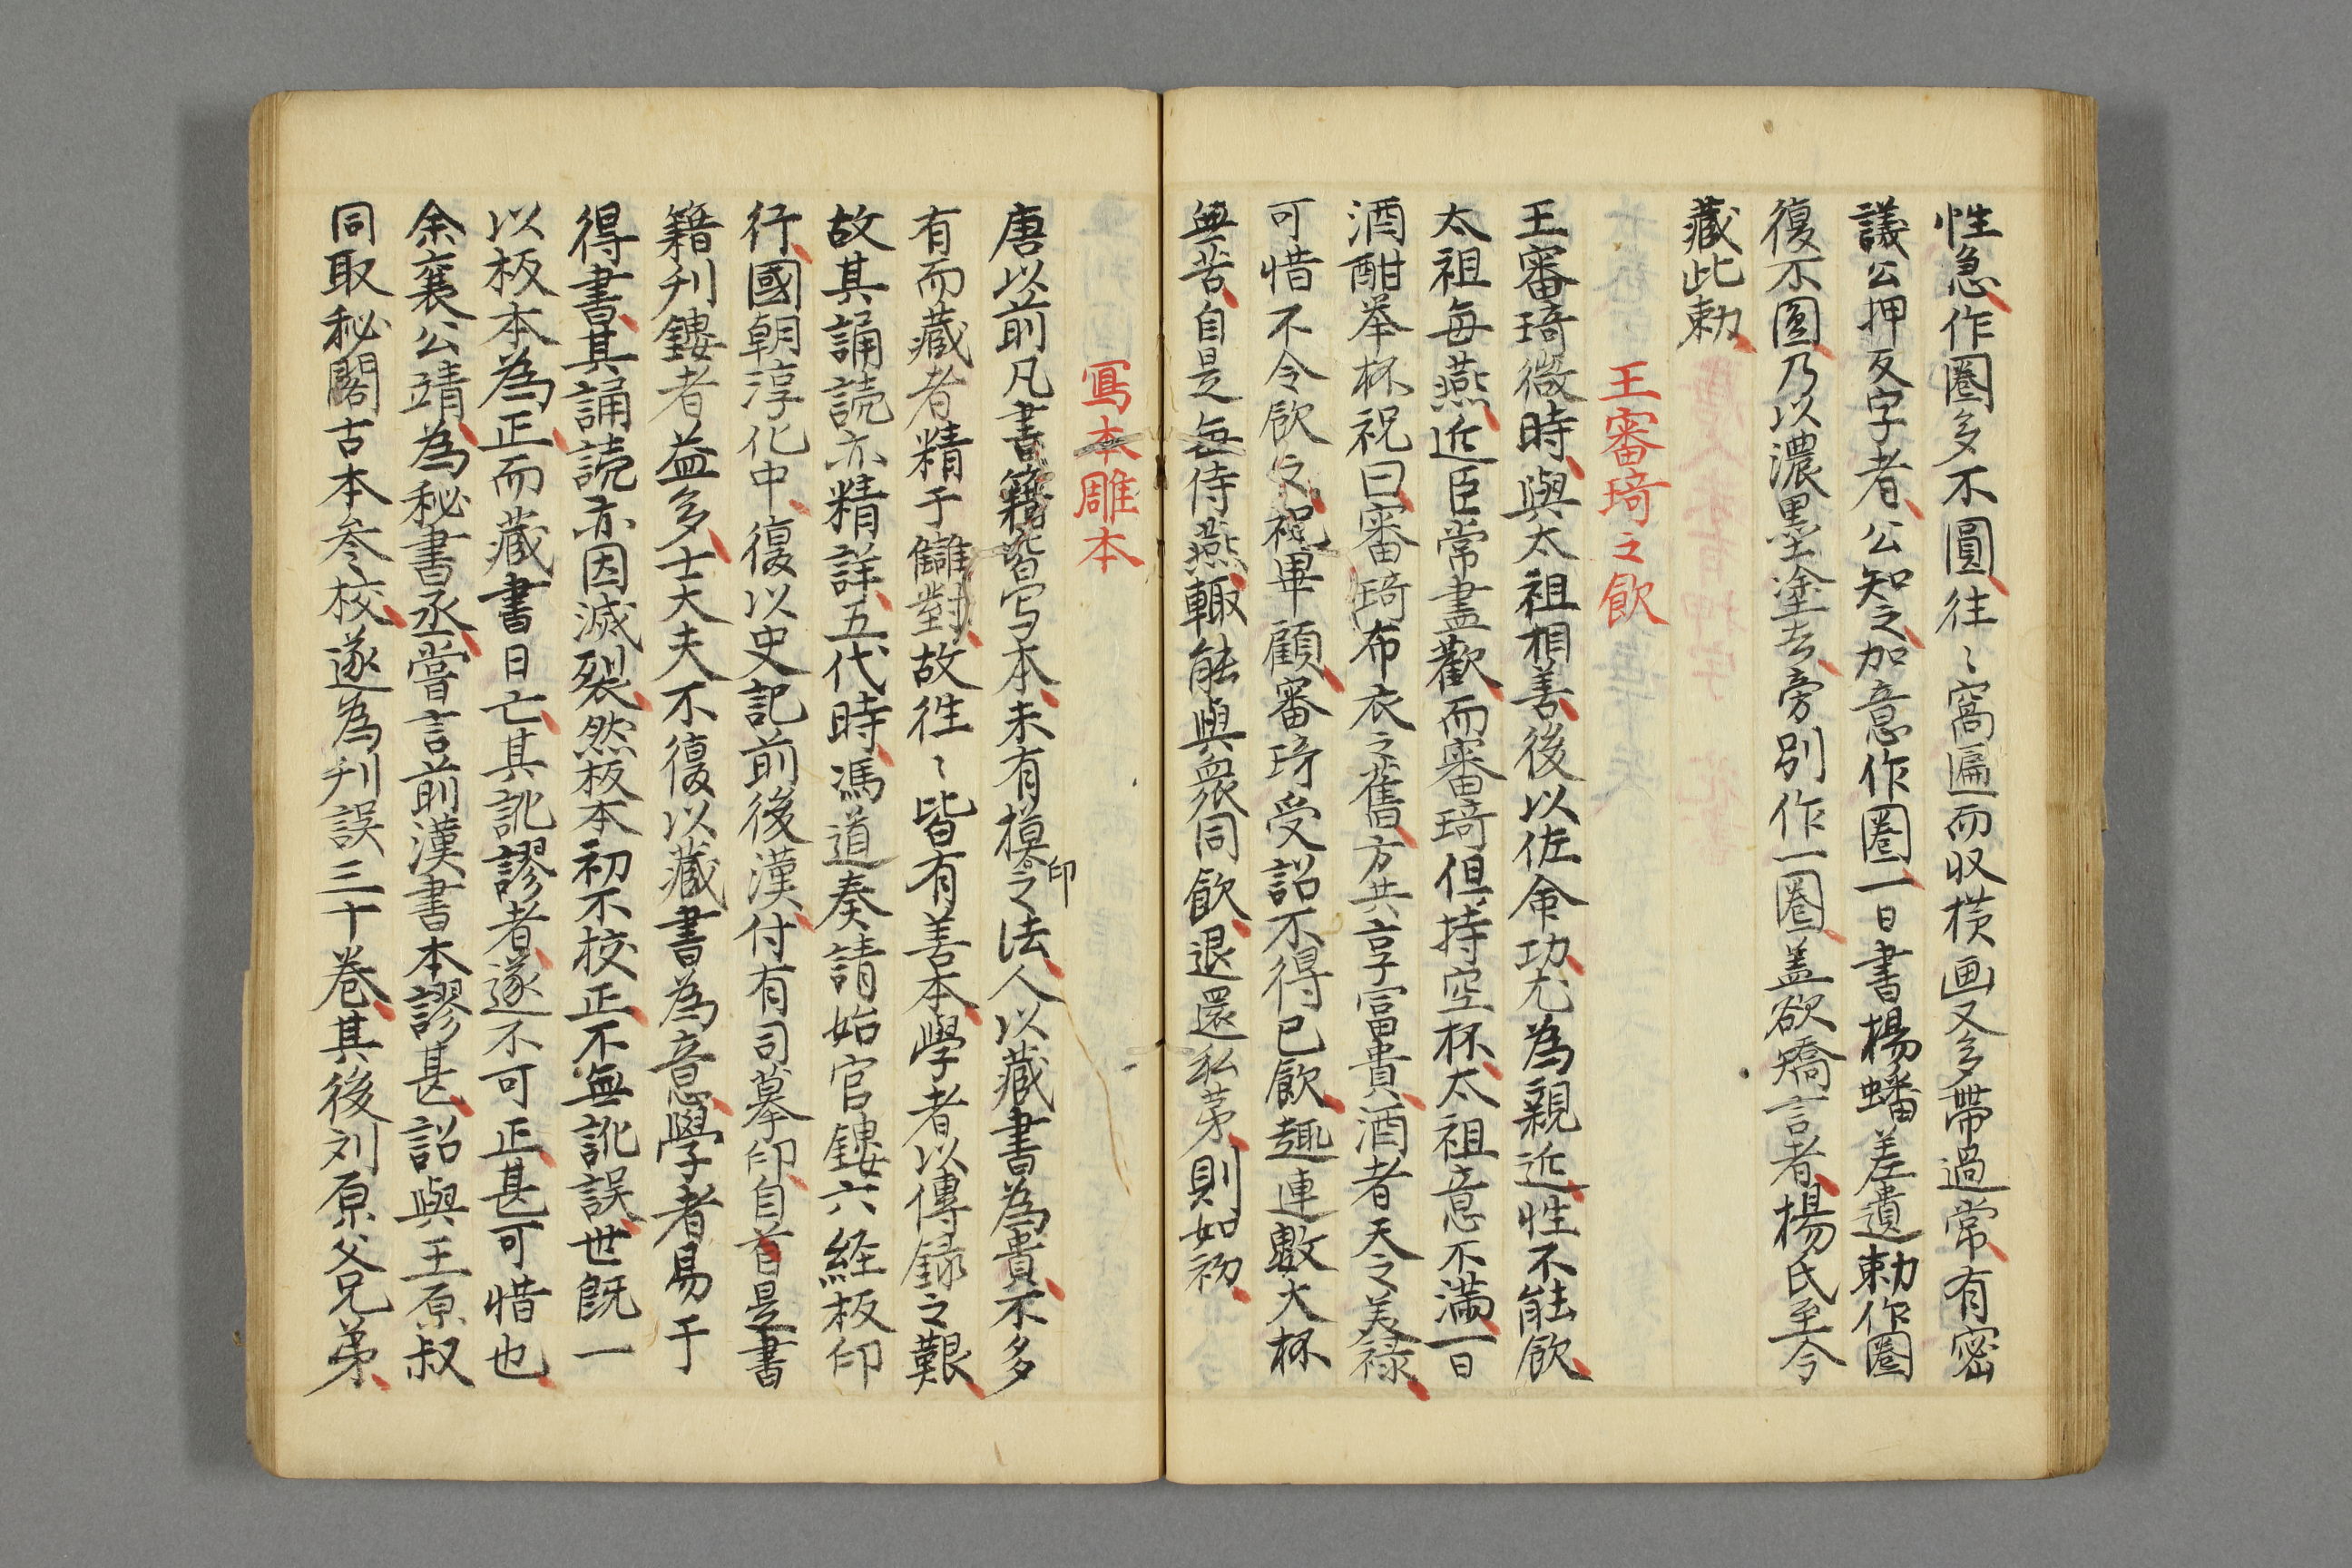 性急作圈多不圓往〻窩匾而収横画又多帶過常有密
議公押反字者公知之加意作圈一日書楊蟠差遺勅作圈
復不圓乃以濃墨塗去旁別作一圈盖欲矯言者楊氏至今
藏此勅
王審琦之飲
王審琦微時與太祖相善後以佐命功尤為親近性不能飲
太祖每燕近臣常盡歡而審琦但持空杯太祖意不滿一日
酒酣举杯祝曰審琦布衣之舊方共享富貴酒者天之美禄
可惜不令飲之祝畢顧審琦受詔不得已飲趣連數大杯
無苦自是每侍燕輙能與衆同飲退還私苐則如初
寫本雕本
唐以前凡書籍皆写本未有模印之法人以藏書為貴不多
有而藏者精于讎對故徃〻皆有善本學者以傳録之艱
故其誦読亦精詳五代時馮道奏請始官鏤六経板印
行國朝淳化中復以史記前後漢付有司摹印自首是書
籍刋鏤者益多士大夫不復以藏書為意學者易于
得書其誦読亦因滅裂然板本初不校正不無訛誤世既一
以板本為正而藏書日亡其訛謬者遂不可正甚可惜也
余襄公靖為秘書丞嘗言前漢書本謬甚詔與王原叔
同取秘閣古本参校遂為刋誤三十卷其後刘原父兄弟